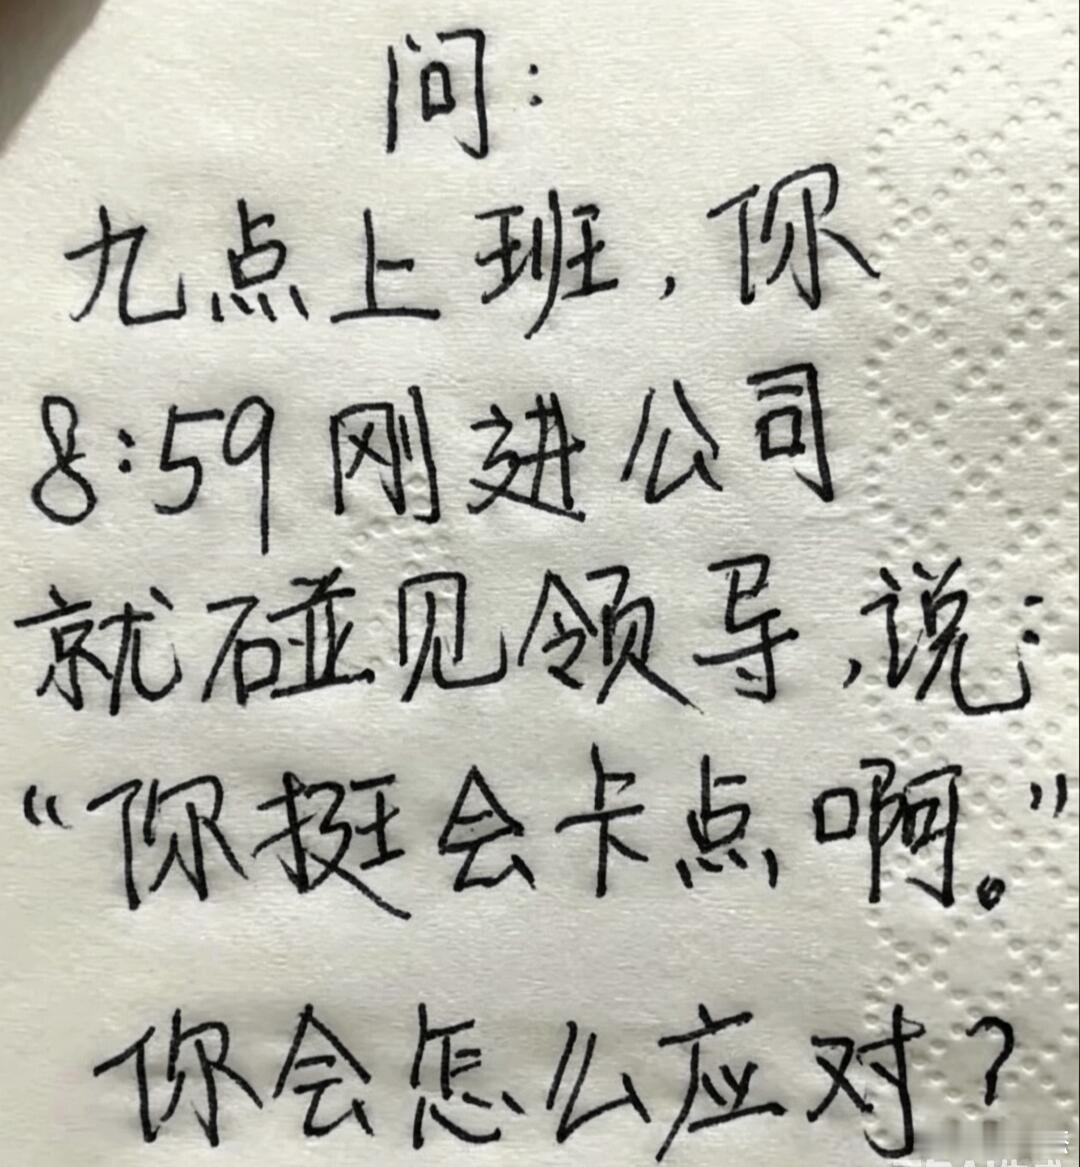 问：
九点上班，你
8:59刚进公司
就碰见领导，说：
“你挺会卡点啊。”
你会怎么应对？